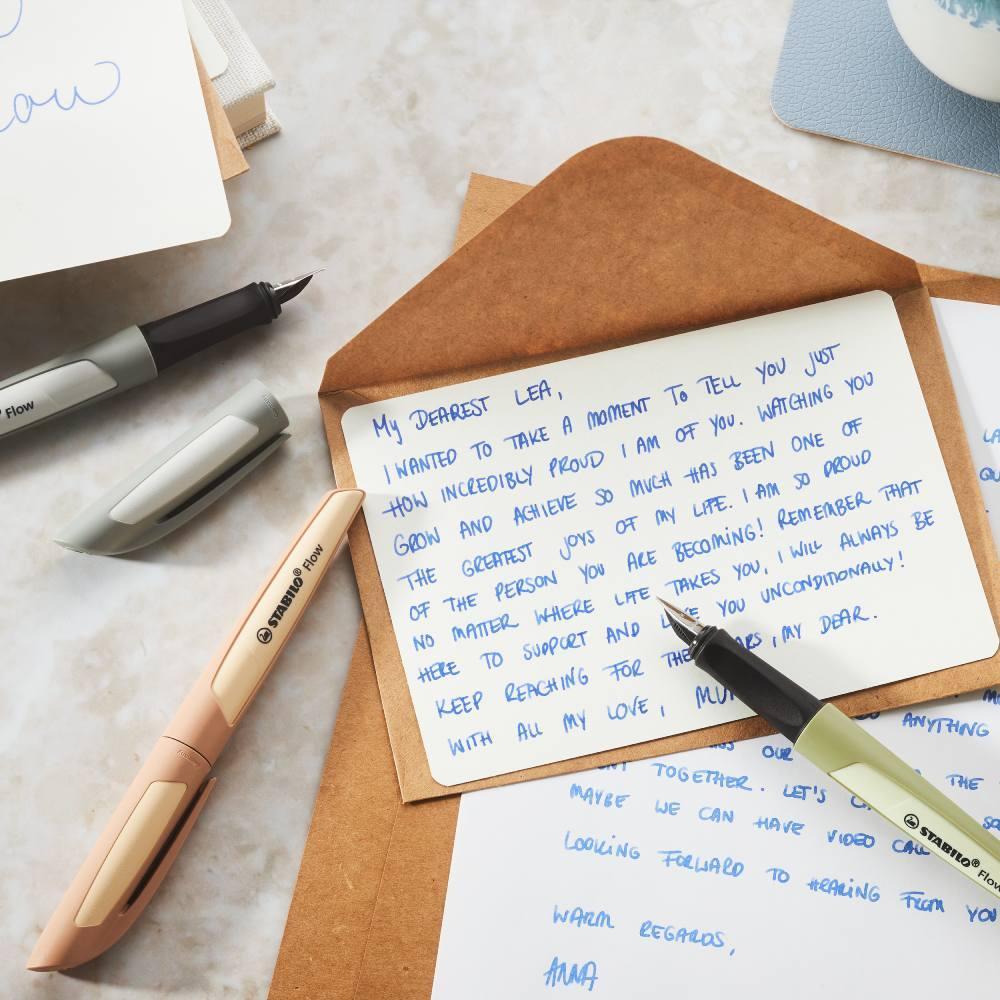 My DEAREST LEA,
I WANTED TO TAKE A MOMENT TO TELL YOU JUST
HOW INCREDIBLY PROUD I AM OF YOU. WATCHING YOU
GROW AND ACHIEVE SO MUCH HAS BEEN ONE OF
THE GREATEST JOYS OF MY LIFE. I AM SO PROUD
OF THE PERSON YOU ARE BECOMING! REMEMBER THAT
NO MATTER WHERE LIFE TAKES YOU, I WILL ALWAYS BE
HERE TO SUPPORT AND YOU UNCONDITIONALLY!
KEEP REACHING FOR THE , MY DEAR.
WITH ALL MY LOVE,
Flow
STABILO® Flow
STABILO® Flow
ANYTHING
OUR THE
TOGETHER. LET'S
MAYBE WE CAN HAVE VIDEO CALL
LOOKING FORWARD TO HEARING FROM YOU
WARM REGARDS,
ANNA